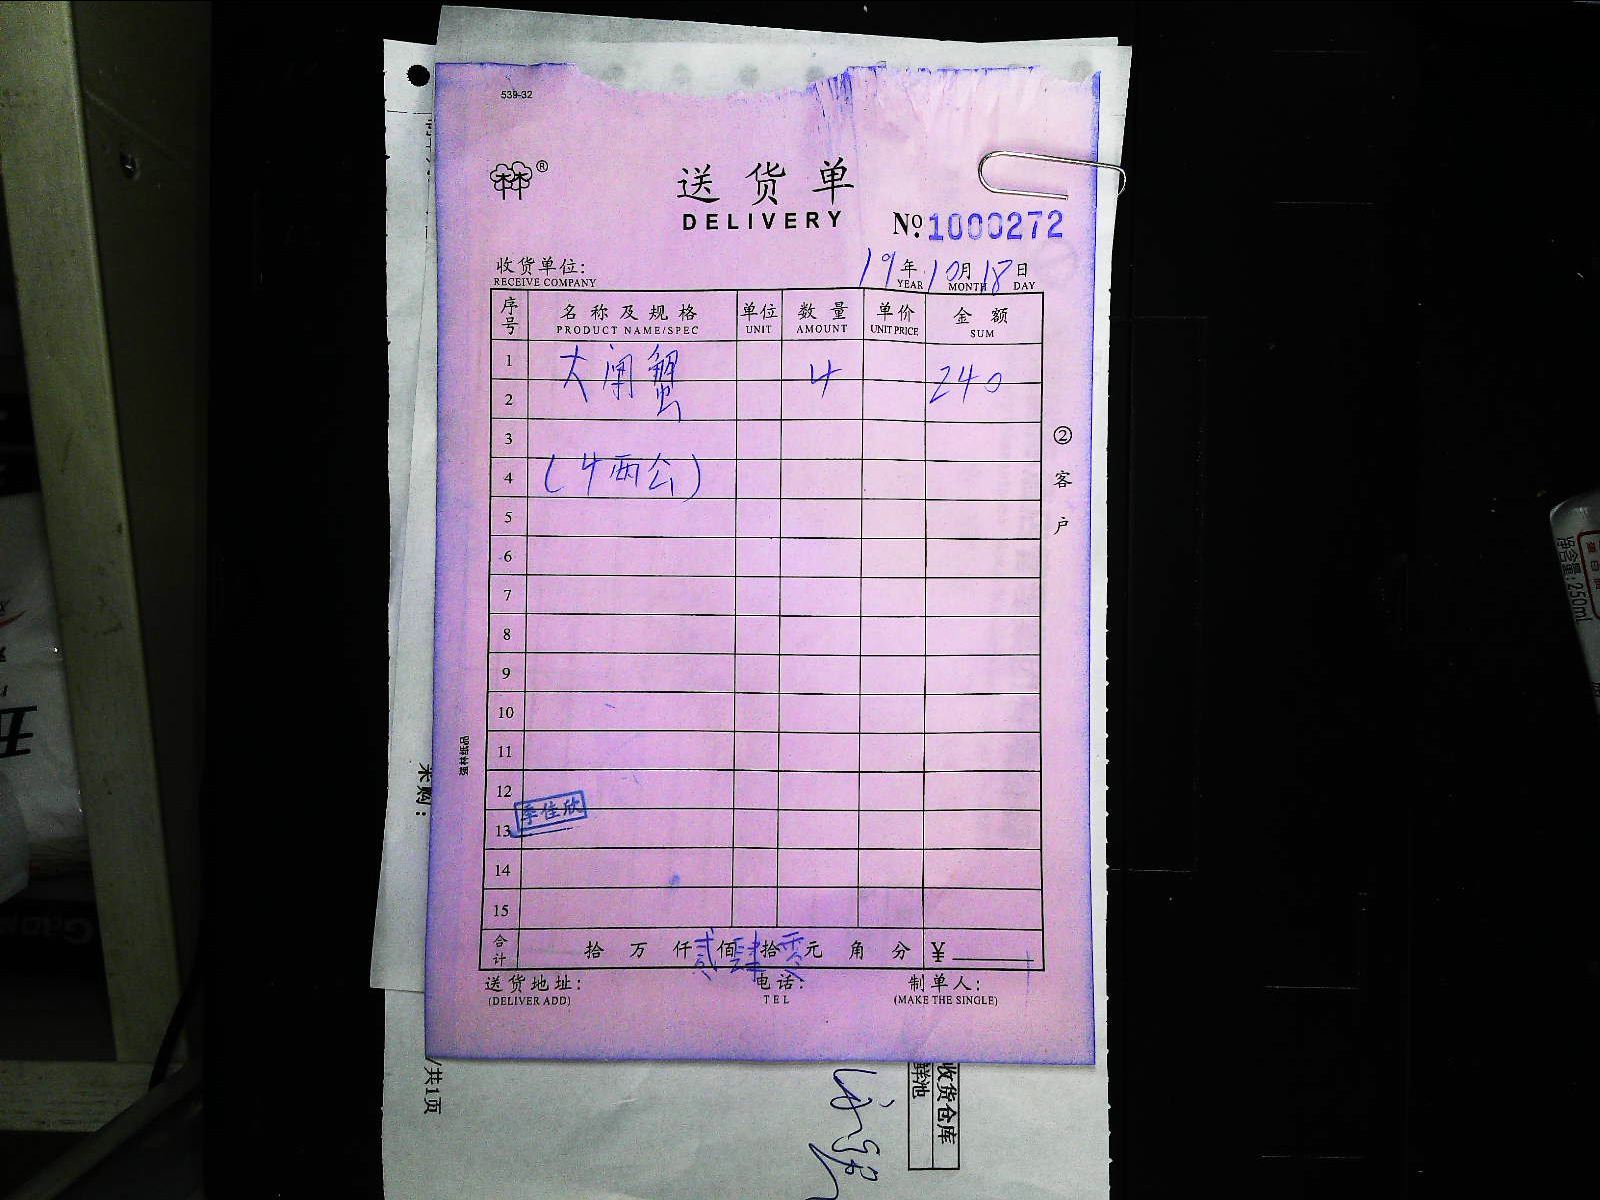 539-32
送货单
DELIVERY
№ 1000272
收货单位:
RECEIVE COMPANY
19年10月18日
YEAR MONTH DAY
序号 名称及规格 单位 数量 单价 金额
PRODUCT NAME/SPEC UNIT AMOUNT UNIT PRICE SUM
1 大闸蟹 4 240
2
3
4 (4两公)
5
6
7
8
9
10
11
12
季佳欣
13
14
15
合计 拾 万 仟 贰佰肆拾零元 角 分 ¥
送货地址: 电话: 制单人:
(DELIVER ADD) TEL (MAKE THE SINGLE)
② 客户
采购:
/共1页
收货仓库
鲜池
净含量:250ml